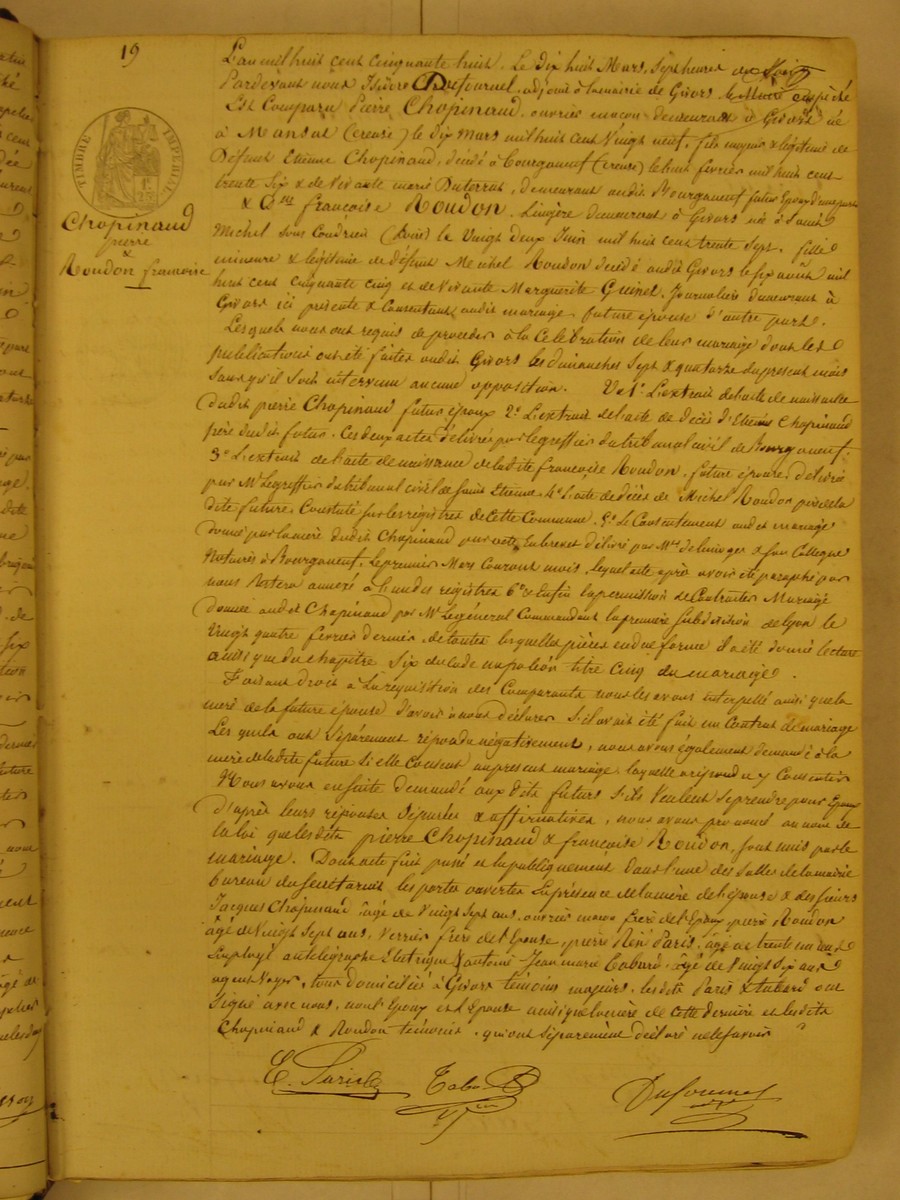 19
TIMBRE IMPERIAL
1F. 25
Chopinaud
pierre
&
Roudon francoise
L'an mil huit cent cinquante huit. Le dix huit Mars, Sept heures du Soir
Pardevant nous Isidore Dufournel, adjoint à la mairie de Givors le Maire empêché
Est Comparu Pierre Chopinaud, ouvrier maçon demeurant à Givors né
à Mansat (creuse) le dix Mars mil huit Cent Vingt neuf, fils majeur & légitime de
Défunt Etienne Chopinaud, décédé à Bourganeuf (creuse) le huit fevrier mil huit cent
trente Six & de Vivante marie Duterrat, demeurant audit Bourganeuf futur Epoux d'une part
& Dlle françoise Roudon, Lingère demeurant à Givors née à Saint
Michel Sous Condrieu (Loire) le Vingt deux Juin mil huit cent trente Sept. fille
mineure & légitime de défunt Michel Roudon décédé audit Givors le six août mil
huit cent cinquante cinq et de Vivante Marguerite Guinet, Journalière demeurant à
Givors ici présente & Consentant audit mariage, future épouse d'autre part.
Lesquels nous ont requis de proceder à la Célébration de leur mariage dont les
publications ont été faites audit Givors les dimanches Sept & quatorze du present mois
Sans qu'il Soit intervenu aucune opposition. Vu 1º L'extrait de l'acte de naissance
dudit pierre Chopinaud futur époux 2º L'extrait de l'acte de décès d'Etienne Chopinaud
père dudit futur. Ces deux actes délivrés par le greffier du tribunal civil de Bourganeuf.
3º L'extrait de l'acte de naissance de ladite françoise Roudon, future épouse, délivré
par Mr le greffier du tribunal civil de Saint Etienne. 4º L'acte de décès de Michel Roudon père de la
dite future, Constaté sur les registres de Cette Commune. 5º Le Consentement audit mariage
donné par la mère dudit Chopinaud par acte en brevet délivré par Me & son Collegue
Notaires à Bourganeuf, le premier Mars Courant mois, lequel acte après avoir été paraphé par
nous Restera annexé à l'un des registres 6º et enfin la permission de Contracter Mariage
donnée audit Chopinaud par Mr Le général Commandant la première Subdivision de Lyon le
Vingt quatre fevrier dernier, de toutes lesquelles pièces en due forme il a été donné lecture
ainsi que du chapitre Six du Code napoléon titre cinq du mariage.
Faisant droit à la requisition des Comparants nous les avons interpellé ainsi que la
mère de la future épouse d'avoir à nous déclarer S'il avait été fait un Contrat de mariage
Lesquels ont Séparement répondu négativement, nous avons également demandé à la
mère de ladite future Si elle Consent au present mariage, laquelle a répondu y Consentir
Nous avons ensuite demandé aux dits futurs S'ils Veulent Se prendre pour Epoux
d'après leurs réponses Séparées & affirmatives, nous avons prononcé au nom de
la loi que lesdits pierre Chopinaud & françoise Roudon, Sont unis par le
mariage. Dont acte fait passé et lu publiquement dans l'une des Salles de la mairie
bureau du Secrétariat les portes ouvertes En présence de la mère de l'épouse & des Sieurs
Jacques Chopinaud âgé de Vingt Sept ans, ouvrier maçon frère de l'Epoux, pierre Roudon
âgé de Vingt Sept ans, Verrier frère de l'Epouse, pierre René Paris, âgé de trente un ans
Employé au télégraphe Electrique & antoine Jean marie Tabard, âgé de Vingt Six ans
agent Voyer, tous domiciliés à Givors témoins majeurs, lesdits Paris & Tabard ont
Signé avec nous, non l'Epoux et l'Epouse ainsi que la mère de cette dernière et lesdits
Chopinaud & Roudon témoins, qui ont Séparément déclaré ne le Savoir
E. Paris
Tabard
Dufournel